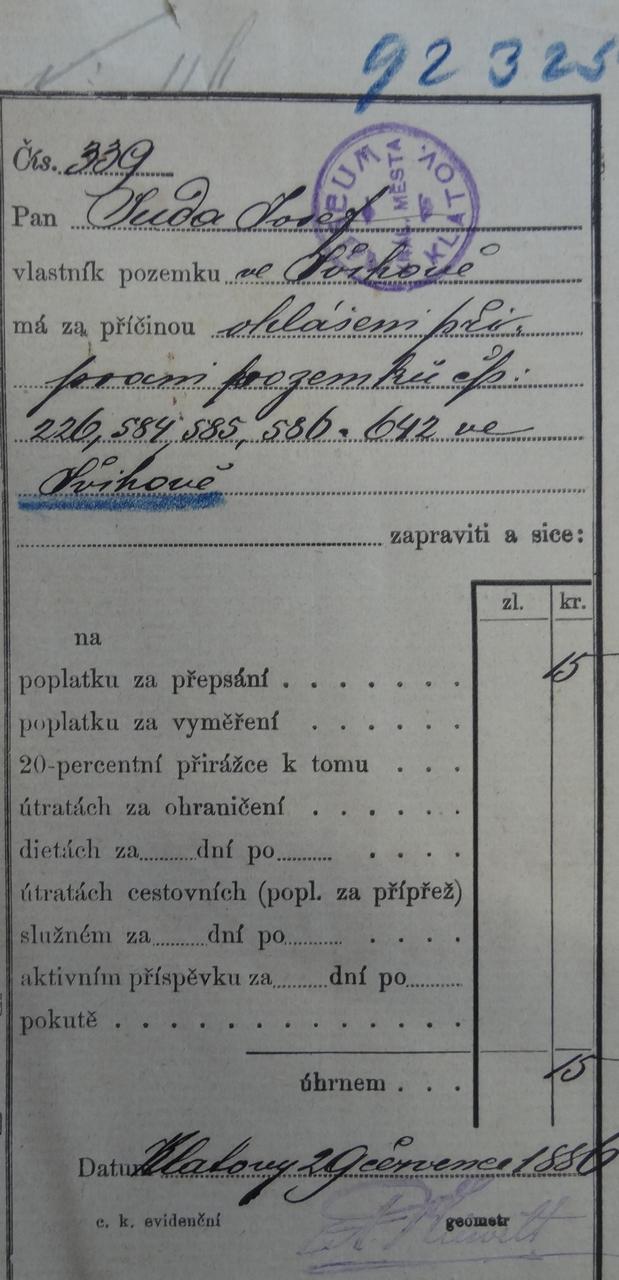 92325
Čís. 339
Pan Suda Josef
vlastník pozemku ve Švihově
má za příčinou ohlášení při-
psani pozemků čp:
226, 584, 585, 586. 642 ve
Švihově
zapraviti a sice:
zl. kr.
na
poplatku za přepsání . . . . . . . 15
poplatku za vyměření . . . . . .
20-percentní přirážce k tomu . . .
útratách za ohraničení . . . . . .
dietách za........dní po........ . . . .
útratách cestovních (popl. za přípřež)
služném za........dní po........ . . . .
aktivním příspěvku za........dní po........
pokutě . . . . . . . . . . . . .
úhrnem . . . 15
Datum Klatovy 29 července 1886
c. k. evidenční geometr
MĚSTA
KLATOV.